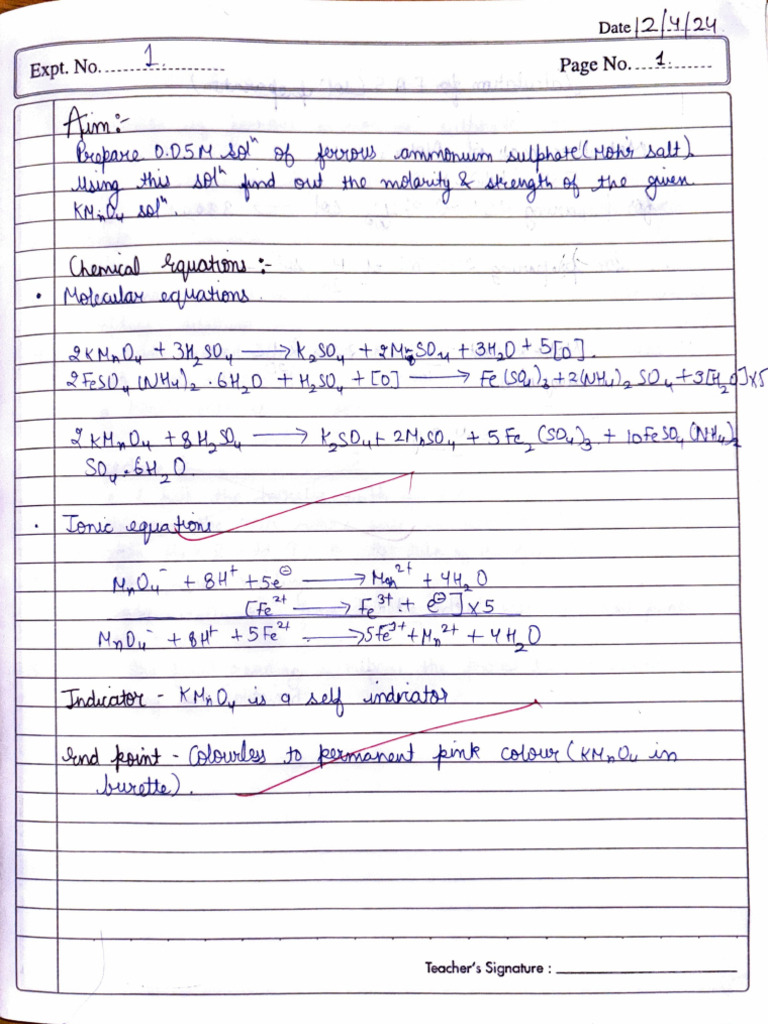 Date 12/4/24
Expt. No. 1
Page No. 1
Aim:-
Prepare 0.05M solⁿ of ferrous ammonium sulphate (Mohr salt).
Using this solⁿ find out the molarity & strength of the given
KMnO₄ solⁿ.
Chemical Equations :-
• Molecular equations.
2KMnO₄ + 3H₂SO₄ ⟶ K₂SO₄ + 2MnSO₄ + 3H₂O + 5[O].
2FeSO₄(NH₄)₂ . 6H₂O + H₂SO₄ + [O] ⟶ Fe(SO₄)₃ + 2(NH₄)₂SO₄ + 3[H₂O] x5
2KMnO₄ + 8H₂SO₄ ⟶ K₂SO₄ + 2MnSO₄ + 5Fe₂(SO₄)₃ + 10FeSO₄(NH₄)₂
SO₄ . 6H₂O
• Ionic equations
MnO₄⁻ + 8H⁺ + 5e⊖ ⟶ Mn²⁺ + 4H₂O
[Fe²⁺ ⟶ Fe³⁺ + e⊖] x5
MnO₄⁻ + 8H⁺ + 5Fe²⁺ ⟶ 5Fe³⁺ + Mn²⁺ + 4H₂O
Indicator - KMnO₄ is a self indicator
End point - Colourless to permanent pink colour (KMnO₄ in
burette).
Teacher's Signature :